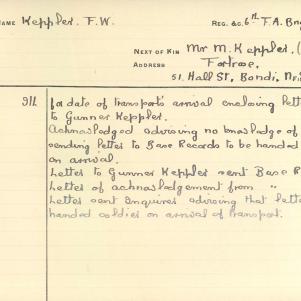 NAME Keppler. F.W. REG. &C. 6th F.A. Brig
NEXT OF KIN Mr M. Keppler. (
ADDRESS Fortrose,
51. Hall St, Bondi, Nr
f a date of transport's arrival enclosing lett
to Gunner Keppler.
Acknowledged advising no knowledge of
sending letter to Base Records to be handed
on arrival.
Letter to Gunner Keppler sent Base R
Letter of acknowledgement from "
Letter sent Enquirer advising that lette
handed soldier on arrival of transport.